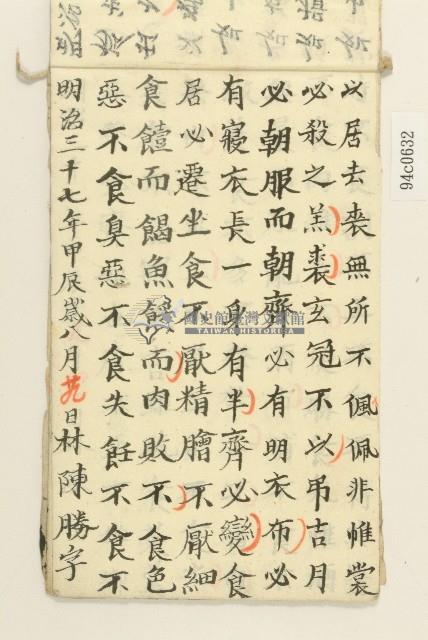 以居去喪無所不佩佩非帷裳
必殺之羔裘玄冠不以吊吉月
必朝服而朝齊必有明衣布必
有寢衣長一身有半齊必變食
居必遷坐食不厭精膾不厭細
食饐而餲魚餒而肉敗不食色
惡不食臭惡不食失飪不食不
明治三十七年甲辰歲八月廿九日林陳勝字
94c0632
國史館臺灣文獻館
TAIWAN HISTORICA